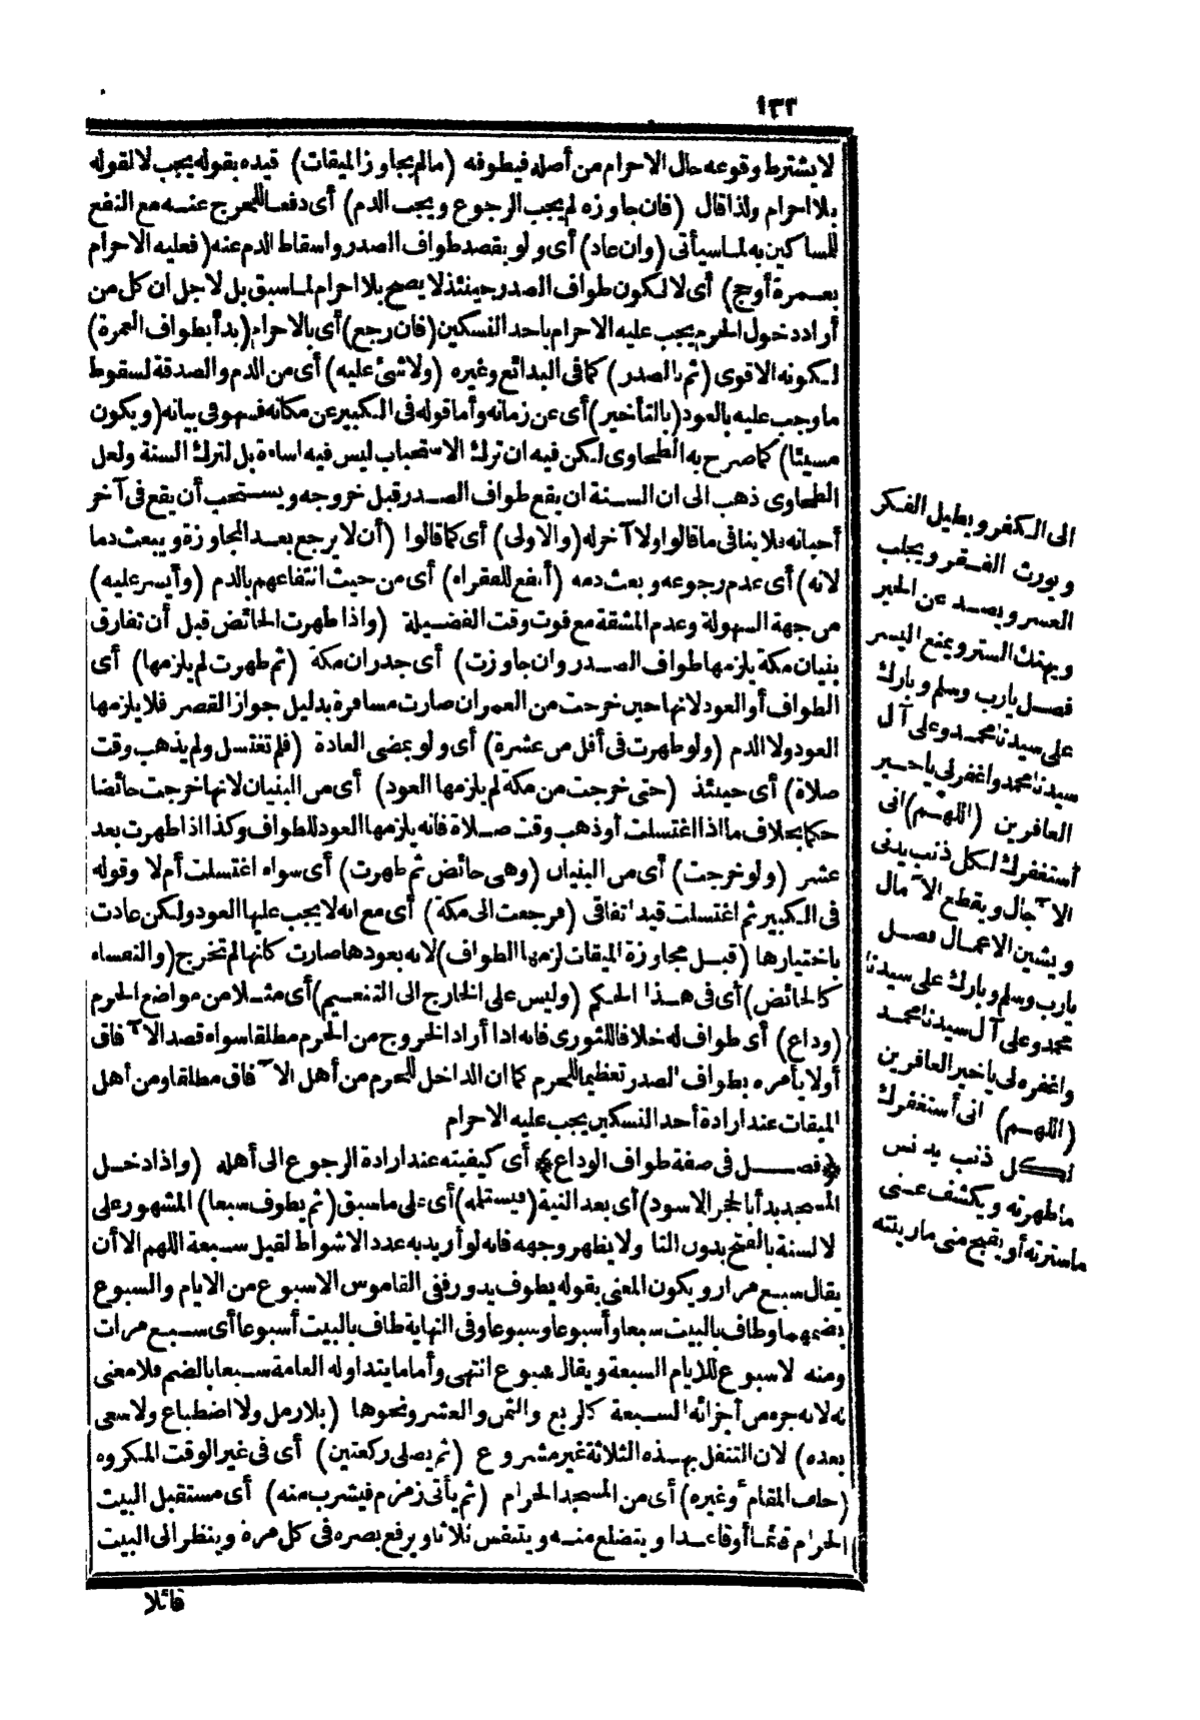 ١٣٢
لا يشترط وقوعه حال الاحرام من أصله فيطوفه (مالم يجاوز الميقات) قيده بقوله يجب لا لقوله
بلا احرام ولذا قال (فان جاوزه لم يجب الرجوع ويجب الدم) أى دفعا للحرج عنه مع النفع
للمساكين به لما سيأتى (وان عاد) أى ولو بقصد طواف الصدر واسقاط الدم عنه (فعليه الاحرام
بعمرة أوحج) أى لا لكون طواف الصدر حينئذ لا يصح بلا احرام لما سبق بل لاجل ان كل من
أراد دخول الحرم يجب عليه الاحرام باحد النسكين (فان رجع) أى بالاحرام (بدأ بطواف العمرة)
لكونه الاقوى (ثم بالصدر) كما فى البدائع وغيره (ولا شئ عليه) أى من الدم والصدقة لسقوط
ما وجب عليه بالعود (بالتأخير) أى عن زمانه وأما قوله فى الكبير عن مكانه فسهو فى بيانه (ويكون
مسيئا) كما صرح به الطحاوى لكن فيه ان ترك الاستحباب ليس فيه اساءة بل لترك السنة ولعل
الطحاوى ذهب الى ان السنة ان يقع طواف الصدر قبل خروجه ويستحب أن يقع فى آخر
أحيانه فلا ينافى ما قالوا ولا آخر له (والاولى) أى كما قالوا (أن لا يرجع بعد المجاوزة ويبعث دما
لانه) أى عدم رجوعه وبعث دمه (أنفع للفقراء) أى من حيث انتفاعهم بالدم (وأيسر عليه)
من جهة السهولة وعدم المشقة مع فوت وقت الفضيلة (واذا طهرت الحائض قبل أن تفارق
بنيان مكة يلزمها طواف الصدر وان جاوزت) أى جدران مكة (ثم طهرت لم يلزمها) أى
الطواف أو العود لانها حين خرجت من العمران صارت مسافرة بدليل جواز القصر فلا يلزمها
العود ولا الدم (ولو طهرت فى أقل من عشرة) أى ولو بمضى العادة (فلم تغتسل ولم يذهب وقت
صلاة) أى حينئذ (حتى خرجت من مكة لم يلزمها العود) أى من البنيان لانها خرجت حائضا
حكما بخلاف ما اذا اغتسلت أو ذهب وقت صلاة فانه يلزمها العود للطواف وكذا اذا طهرت بعد
عشر (ولو خرجت) أى من البنيان (وهى حائض ثم طهرت) أى سواء اغتسلت أم لا وقوله
فى الكبير ثم اغتسلت قيد اتفاقى (فرجعت الى مكة) أى مع انه لا يجب عليها العود ولكن عادت
باختيارها (قبل مجاوزة الميقات لزمها الطواف) لانه بعودها صارت كأنها لم تخرج (والنفساء
كالحائض) أى فى هذا الحكم (وليس على الخارج الى التنعيم) أى مثلا من مواضع الحرم
(وداع) أى طواف له خلافا للثورى فانه اذا أراد الخروج من الحرم مطلقا سواء قصد الآفاق
أولا يأمره بطواف الصدر تعظيما للحرم كما ان الداخل للحرم من أهل الآفاق مطلقا ومن أهل
الميقات عند ارادة أحد النسكين يجب عليه الاحرام
﴿فصل فى صفة طواف الوداع﴾ أى كيفيته عند ارادة الرجوع الى أهله (واذا دخل
المسجد بدأ بالحجر الاسود) أى بعد النية (فيستلمه) أى على ما سبق (ثم يطوف سبعا) المشهور على
الالسنة بالفتح بدون التا ولا يظهر وجهه فانه لو أريد به عدد الاشواط لقيل سبعة اللهم الا أن
يقال سبع مرار ويكون المعنى بقوله يطوف يدور ففى القاموس الاسبوع من الايام والسبوع
بضمهما وطاف بالبيت سبعا وأسبوعا وسبوعا وفى النهاية طاف بالبيت أسبوعا أى سبع مرات
ومنه الاسبوع للايام السبعة ويقال سبوع انتهى وأما ما يتداوله العامة سبعا بالضم فلا معنى
له لانه جزء من أجزائه السبعة كالربع والثمن والعشر ونحوها (بلا رمل ولا اضطباع ولا سعى
بعده) لان التنفل بهذه الثلاثة غير مشروع (ثم يصلى ركعتين) أى فى غير الوقت المكروه
(خلف المقام أوغيره) أى من المسجد الحرام (ثم يأتى زمزم فيشرب منه) أى مستقبل البيت
الحرام قائما أو قاعدا ويتضلع منه ويتنفس ثلاثا ويرفع بصره فى كل مرة وينظر الى البيت
قائلا
الى الكفر ويطيل الفكر
ويورث الفقر ويجلب
العسر ويصد عن الخير
ويهتك الستر ويمنع اليسر
فصل يارب وسلم وبارك
على سيدنا محمد وعلى آل
سيدنا محمد واغفر لى ياخير
الغافرين (اللهم) انى
أستغفرك لكل ذنب يدنى
الآجال ويقطع الآمال
ويشين الاعمال فصل
يارب وسلم وبارك على سيدنا
محمد وعلى آل سيدنا محمد
واغفره لى ياخير الغافرين
(اللهم) انى أستغفرك
لكل ذنب يدنس
ما طهرته ويكشف عنى
ما سترته أو يقبح منى ما زينته